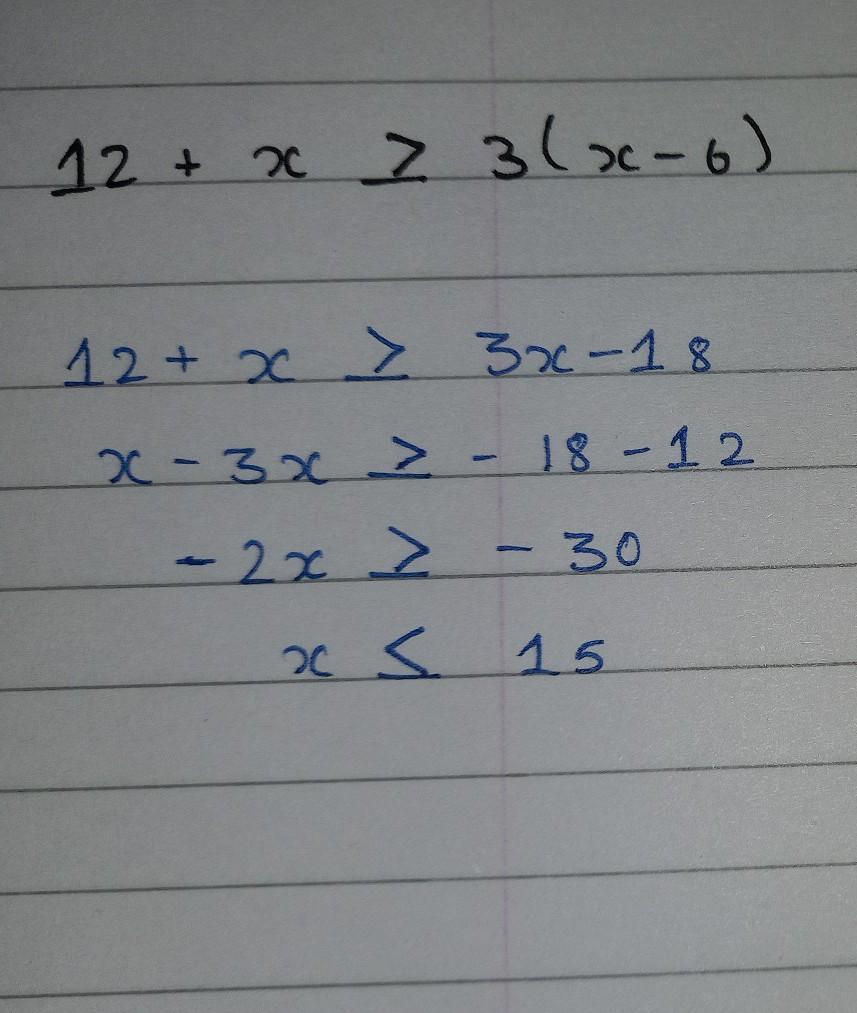 12 + x ≥ 3(x - 6)
12 + x ≥ 3x - 18
x - 3x ≥ - 18 - 12
- 2x ≥ - 30
x ≤ 15